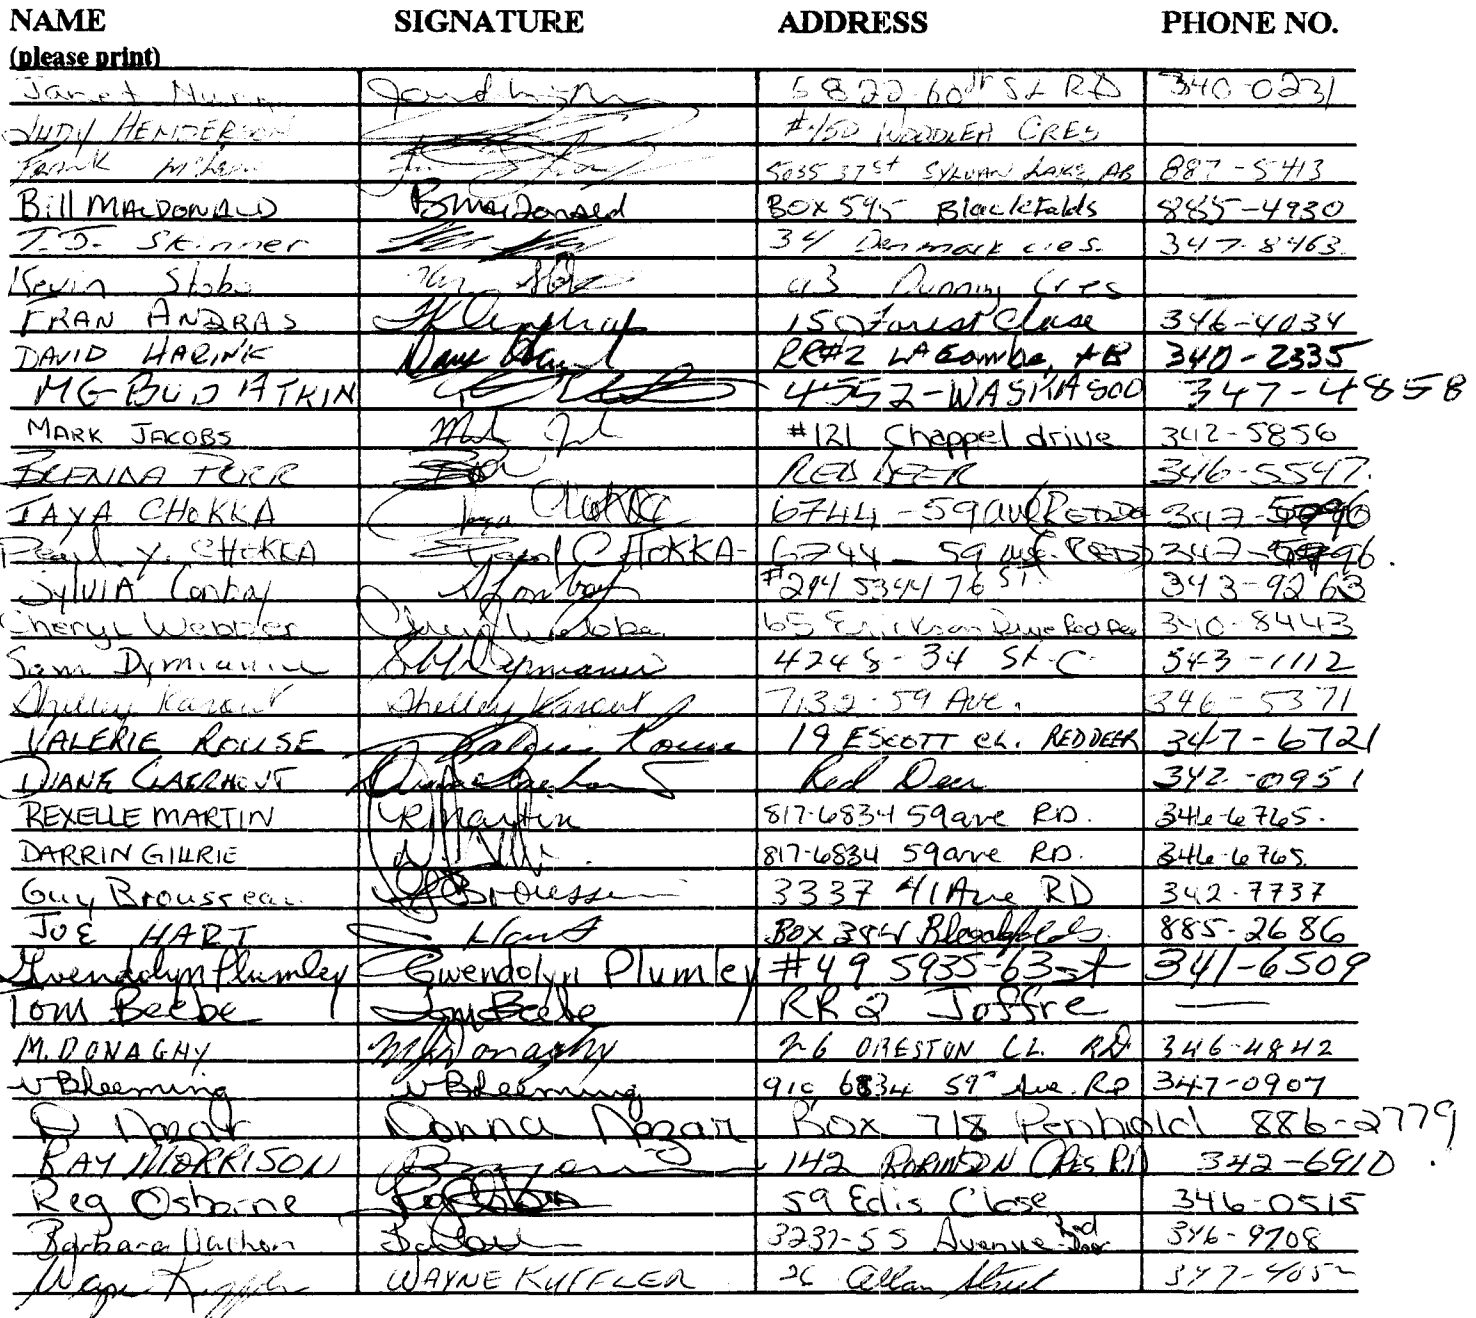 NAME SIGNATURE ADDRESS PHONE NO.
(please print)
Janet 5822-60th St RD 340-0231
JUDY HENDERSON #450 WOODLEA CRES
FRANK 5035 37 St SYLVAN LAKE, AB 887-5413
Bill MACDONALD B MacDonald BOX 595 Blackfalds 885-4930
T.J. Skinner 34 Denmark cres. 347-8463
Kevin Cres
FRAN ANDRAS 150 Forest Close 346-4034
DAVID HARINK RR#2 LACombe, AB 340-2335
MG BUD ATKIN 4552-WASKASOO 347-4858
MARK JACOBS #121 Chappel drive 342-5856
RED DEER 346-5547.
JAYA CHOKKA Jaya CHOKKA 6744-59 ave 347-5096
Pearl. Y. CHOKKA Pearl CHOKKA 6744-59 ave. 347-
SYLVIA #294 5344 76 St 343-9263
Cheryl Webber Cheryl Webber 65 Erickson Drive Red Deer 340-8443
Sam 4248-34 St. C. 343-1112
Shelley Karaut Shelley Karaut 7132-59 Ave. 346-5371
VALERIE ROUSE Valerie Rouse 19 ESCOTT CL. RED DEER 347-6721
DIANE CLAERHOUT Diane Claerhout Red Deer 342-0951
REXELLE MARTIN R Martin 817-6834 59 ave RD. 346-6765.
DARRIN GILLRIE 817-6834 59 ave RD. 346-6765.
Guy Brousseau G Brousseau 3337 41 Ave RD 342-7737
JOE HART J Hart BOX 384 Blackfalds. 885-2686
Gwendolyn Plumley Gwendolyn Plumley #49 5935-63 st 341-6509
Tom Beebe Tom Beebe RR 2 Joffre —
M. DONAGHY M Donaghy 26 CL. RD 346-4842
910 6834 59th Ave. RD 347-0907
D Nazar Donna Nazar Box 718 Penhold 886-2779
RAY MORRISON 142 ROBINSON CRES RD 342-6910.
Reg Osborne 59 Edis Close 346-0515
Barbara 3237-55 Avenue Red Deer 346-9708
Wayne Kuffler WAYNE KUFFLER 26 Allan Street 347-4052